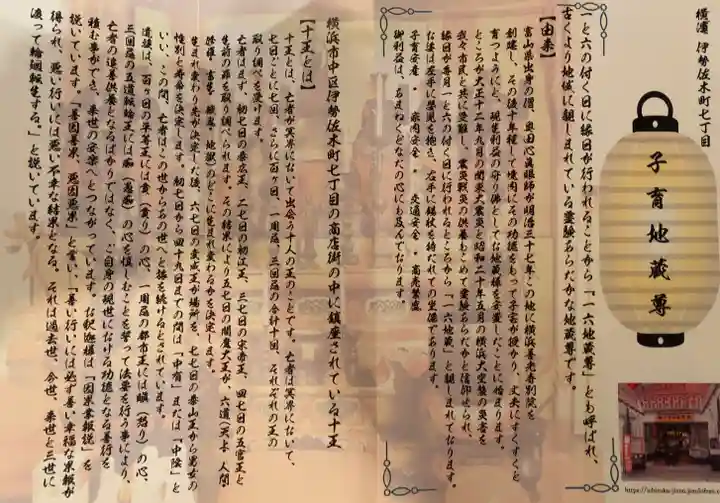 横濱 伊勢佐木町七丁目
子育地蔵尊
一と六の付く日に縁日が行われることから「一六地蔵尊」とも呼ばれ、
古くより地域に親しまれている霊験あらたかな地蔵尊です。
【由来】
富山県出身の僧、奥田心眼師が明治三十七年この地に横浜善光寺別院を
創建し、その後十年程して境内にその功徳をもって子宝が授かり、丈夫にすくすくと
育つようにと、現世利益の守り佛としてお地蔵様を安置したことに始まります。
ところが大正十二年九月の関東大震災と昭和二十年五月の横浜大空襲の災害を
我々市民と共に受難し、震災戦災の供養もこめて霊験あらたかと信仰せられ、
縁日が毎月一と六の付く日に行われるところから「一六地蔵」と親しまれております。
お姿は左手に嬰児を抱き、右手に錫杖を持たれての坐像であります。
子育安産 ・ 家内安全 ・ 交通安全 ・ 商売繁盛
御利益は、あまねくどなたの心にも及んでおります。
横浜市中区伊勢佐木町七丁目の商店街の中に鎮座されている十王
【十王とは】
十王とは、亡者が冥界において出会う十人の王のことです。亡者は冥界において、
七日ごとに七回、さらに百ヶ日、一周忌、三回忌の合計十回、それぞれの王の
取り調べを受けます。
亡者はまず、初七日の秦広王、二七日の初江王、三七日の宋帝王、四七日の五官王と
生前の罪を取り調べられます。その結果により五七日の閻魔大王が、六道(天上 人間
修羅・畜生・餓鬼・地獄)のどこに生まれ変わるかを決定します。
生まれ変わり先が決定した後、六七日の変成王が場所を、七七日の泰山王から男女の
性別と寿命を決定します。初七日から四十九日までの間は「中有」または「中陰」と
いい、この間、亡者はこの世からあの世へと旅を続けるとされています。
遺族は、百ヶ日の平等王には貪(貪り)の心、一周忌の都市王には瞋(怒り)の心、
三回忌の五道転輪王には癡(愚痴)の心を慎むことを誓って法要を行う事により、
亡者の追善供養となるばかりではなく、ご自身の現世における功徳となる善行を
積む事ができ、来世の安楽へとつながっています。お釈迦様は「因果業報説」を
説いています。「善因善果、悪因悪果」と言い、「善い行いには必ず善い幸福な果報が
得られ、悪い行いには悪い不幸な結果となる。それは過去世、今世、来世と三世に
渡って輪廻転生する。」と説いています。